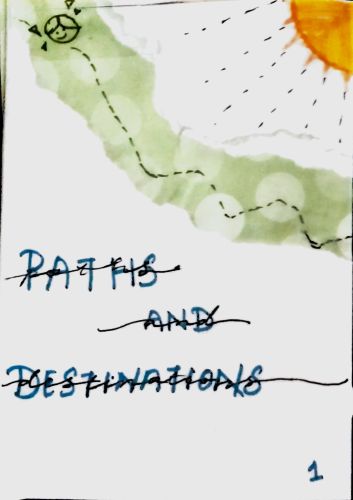 PATHS
AND
DESTINATIONS
1